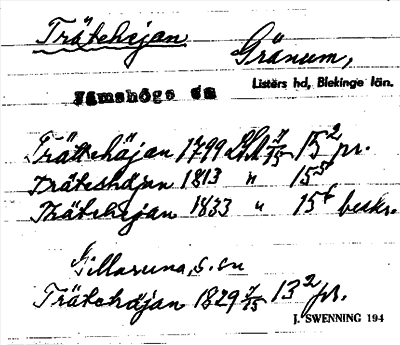 Trätehejan
Gränum,
Listers hd, Blekinge län.
Jämshögs sn
Trättehäjan 1799 LSA 7/15 15² pr.
Träteshäjan 1813 " 15⁵
Trätehejan 1833 " 15⁶ beskr.
Gillaruna, s. sn
Trätehäjan 1829 7/15 13² pr.
J. SWENNING 194